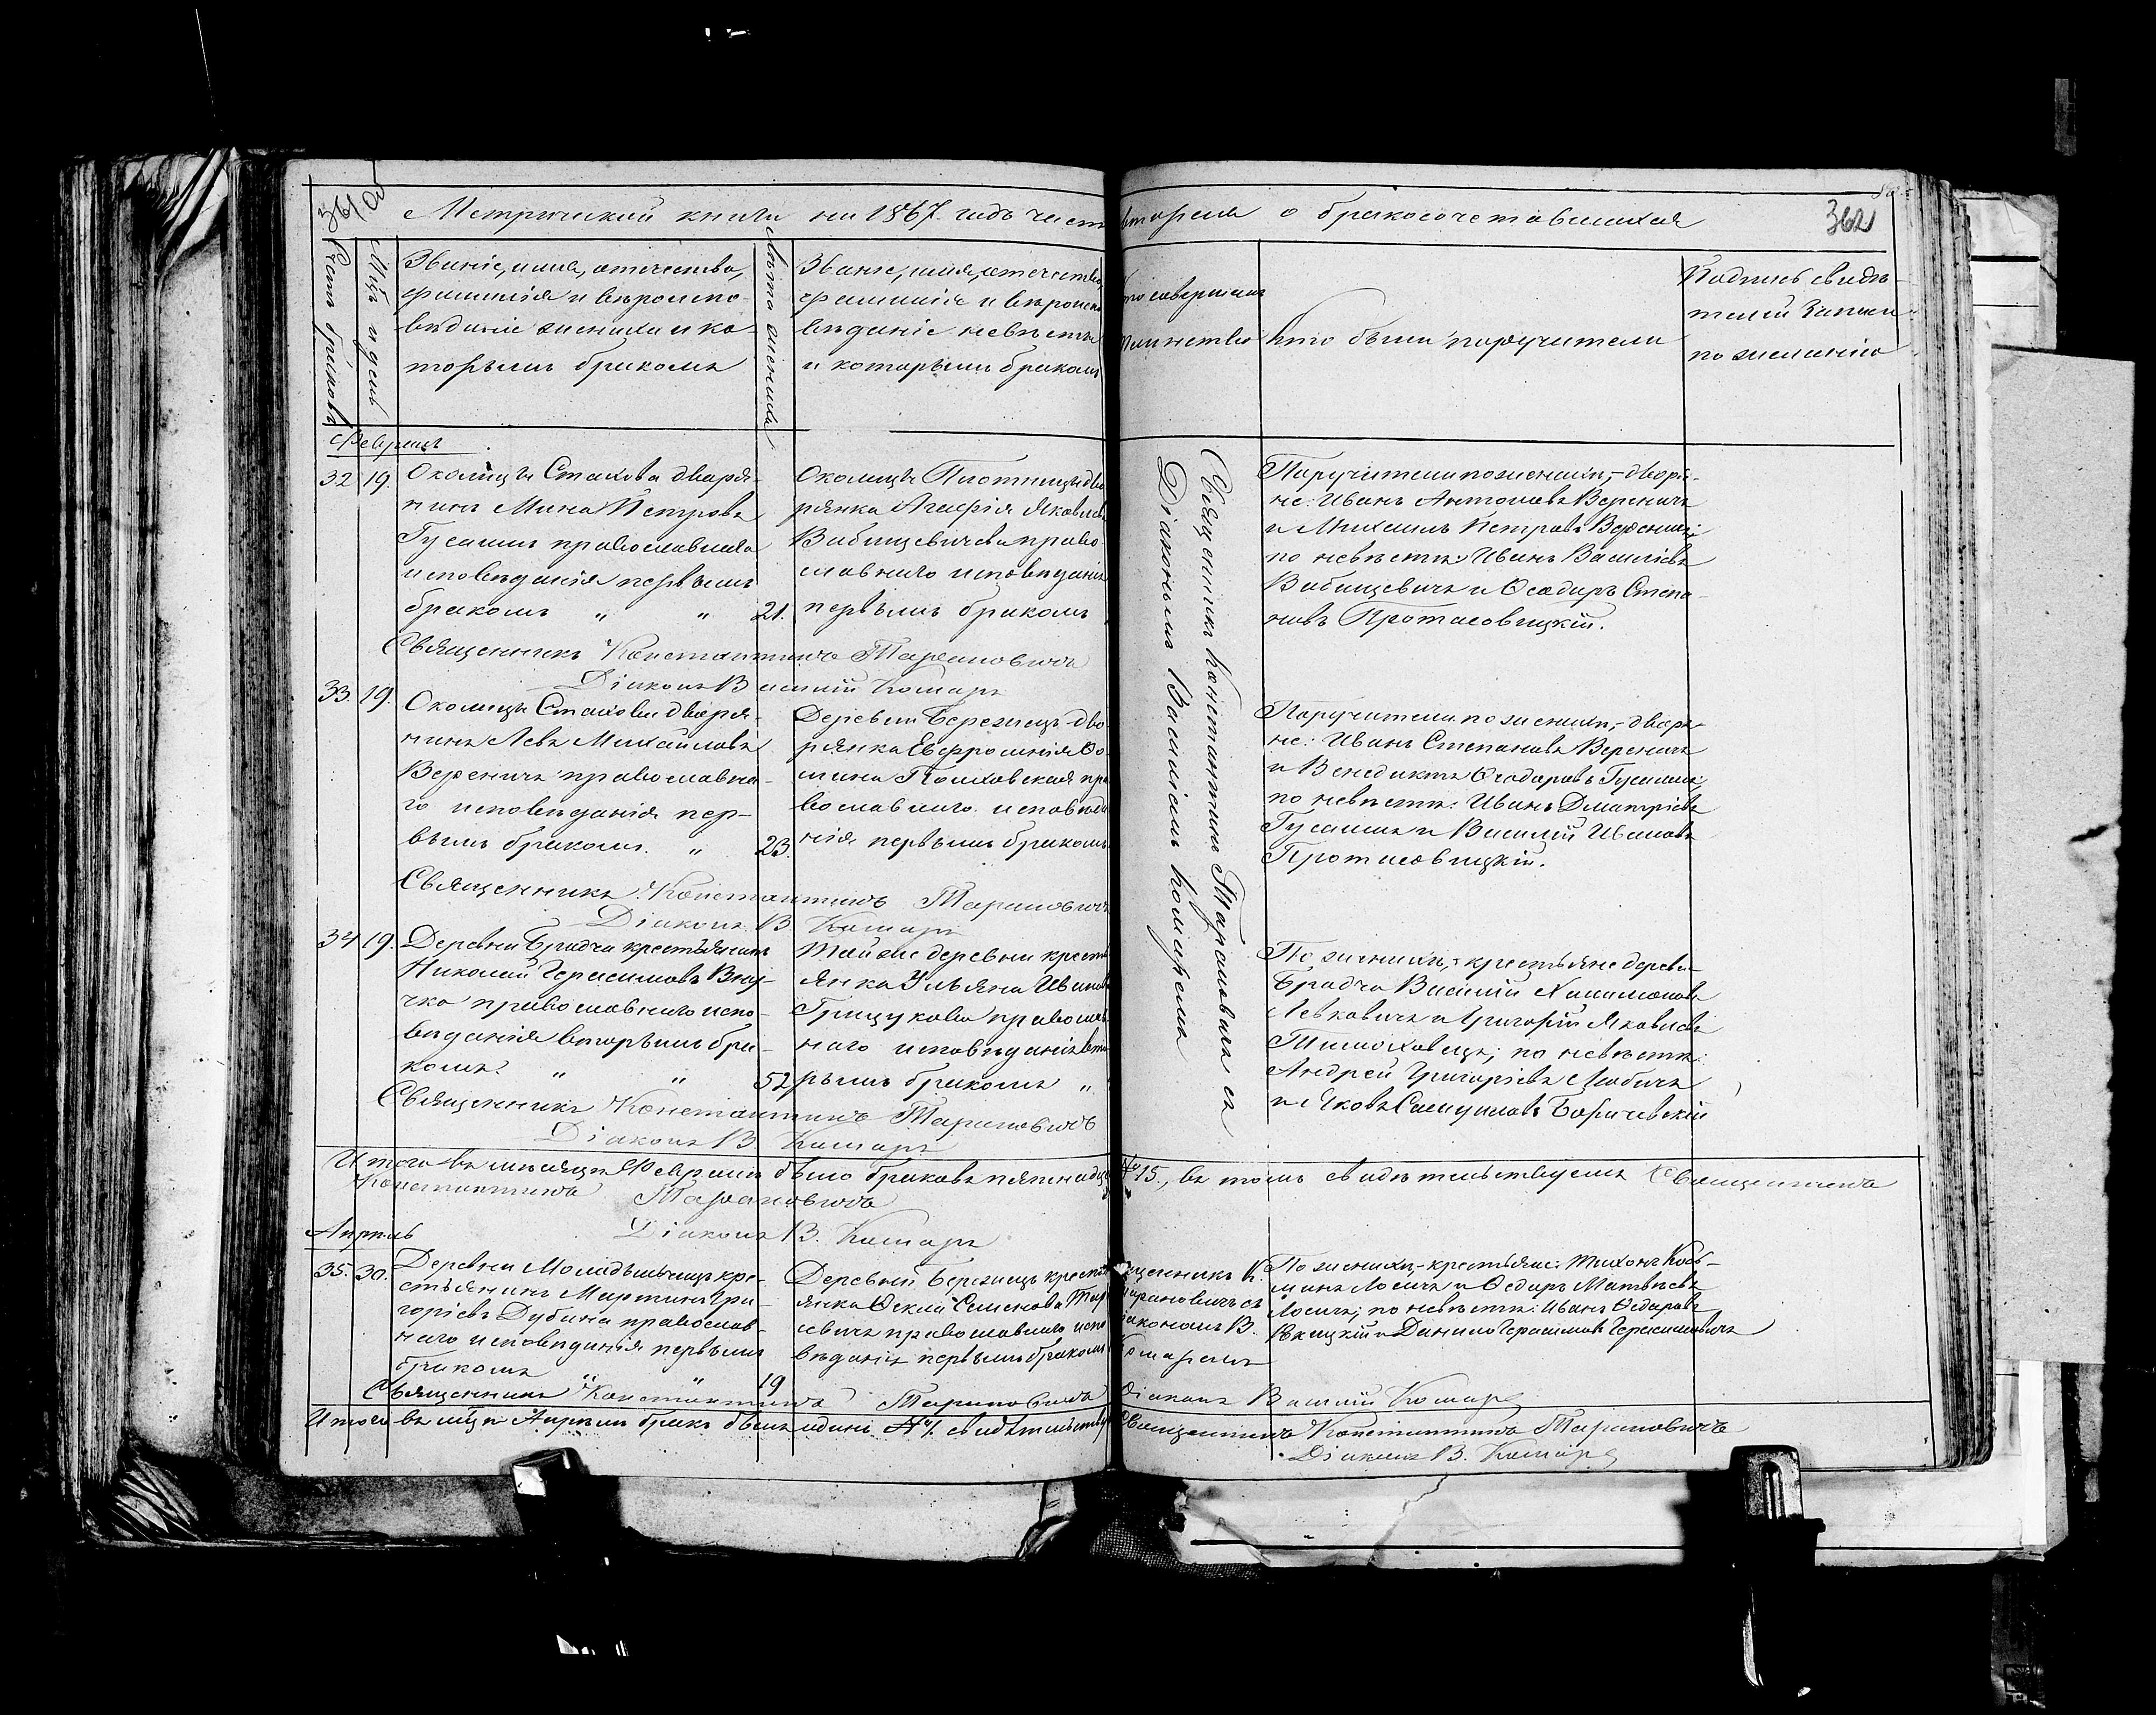 362
Метрической книги на 1867 годъ часть второй о бракосочетавшихся
Счетъ браковъ
Мѣсяцъ и день
Званіе, имя, отечество,
фамилія и вѣроиспо-
вѣданіе жениха и ко-
торымъ бракомъ
Лѣта жениха
Званіе, имя, отечество,
фамилія и вѣроиспо
вѣданіе невѣсты
и которымъ бракомъ
Кто совершалъ
таинство
Кто были поручители
Подпись свидѣ-
телей записи
по желанію
Февраль
32 19.
Околицы Стахова дворя-
нинъ Мина Петровъ
Гусаимъ православнаго
исповѣданія первымъ
бракомъ „ „ 21.
Околицы Плотницы дво
рянка Агафія Яковлева
Вабищевичева право
славнаго исповѣданія
первымъ бракомъ
Поручители по женихѣ,- дворя-
не: Иванъ Антоновъ Вереничъ
и Михаилъ Петровъ Вереничъ;
по невѣстѣ: Иванъ Василіевъ
Вабищевичъ и Ѳеодоръ Степа-
новъ Протасовицкій.
Священникъ Константинъ Тарановичъ
Діаконъ Василій Комаръ
33. 19.
Околицы Стахова дворя-
нинъ Левъ Михайловъ
Вереничъ православна-
го исповѣданія пер-
вымъ бракомъ. „ 23.
Деревни Бережецъ дво
рянка Евфросинія Ѳо-
мина Полховская пра
вославнаго исповѣда
нія первымъ бракомъ
Поручители по женихѣ,- дворя-
не: Иванъ Степановъ Вереничъ
и Венедиктъ Ѳеодоровъ Гусаимъ;
по невѣстѣ: Иванъ Дмитріевъ
Гусаимъ и Василій Ивановъ
Протасовицкій.
Священникъ Константинъ Тарановичъ
Діаконъ В Комаръ
34 19.
Деревни Брадча крестьянинъ
Николай Герасимовъ Вну-
чко православнаго испо-
вѣданія вторымъ бра-
комъ. „ „ 52
Той же деревни кресть
янка Ульяна Иванова
Грицукова православ
наго исповѣданія вто
рымъ бракомъ „
По женихѣ,- крестьяне деревни
Брадча Василій
Левковичъ и Григорій Яковлевъ
Тимоховецъ; по невѣстѣ:
Андрей Григоріевъ Любичъ
и Яковъ Самуиловъ Боричевскій
Священникъ Константинъ Тарановичъ
Діаконъ В Комаръ
Священникъ Константинъ Тарановичъ съ
Діакономъ Василіемъ Комаремъ
Итого въ мѣсяцѣ Февралѣ было браковъ пятнадца № 15., въ томъ свидѣтельствуемъ Священникъ
Константинъ Тарановичъ
Діаконъ В. Комаръ
Апрѣль
35. 30.
Деревни Молодѣльчицъ кре-
стьянинъ Мартинъ Гри-
горіевъ Дубина православ-
наго исповѣданія первымъ
бракомъ „ „ 19
Деревни Бережецъ кресть
янка Ѳекла Семенова
евичъ православнаго испо
вѣданія первымъ бракомъ
щенникъ К.
Тарановичъ съ
іакономъ В.
Комаремъ
По женихѣ,- крестьяне: Тихонъ Кось-
минъ Лосичъ и Ѳедоръ Матвѣевъ
Лосичъ; по невѣстѣ: Иванъ Ѳедоровъ
и Данило Герасимовъ Герасимовичъ
Священникъ Константинъ Тарановичъ Діаконъ Василій Комаръ
Итого въ мѣсяцѣ Апрѣлѣ бракъ былъ одинъ № 1. свидѣтельству Священникъ Константинъ Тарановичъ
Діаконъ В. Комаръ